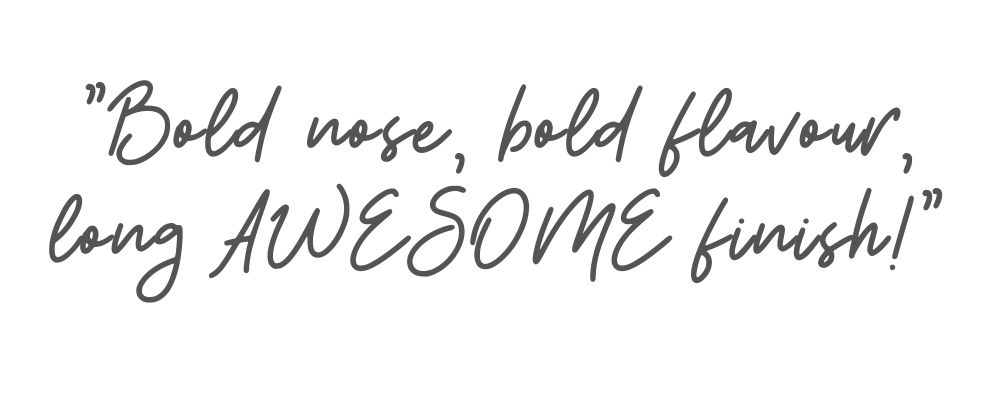 ”Bold nose, bold flavour,
long AWESOME finish!”